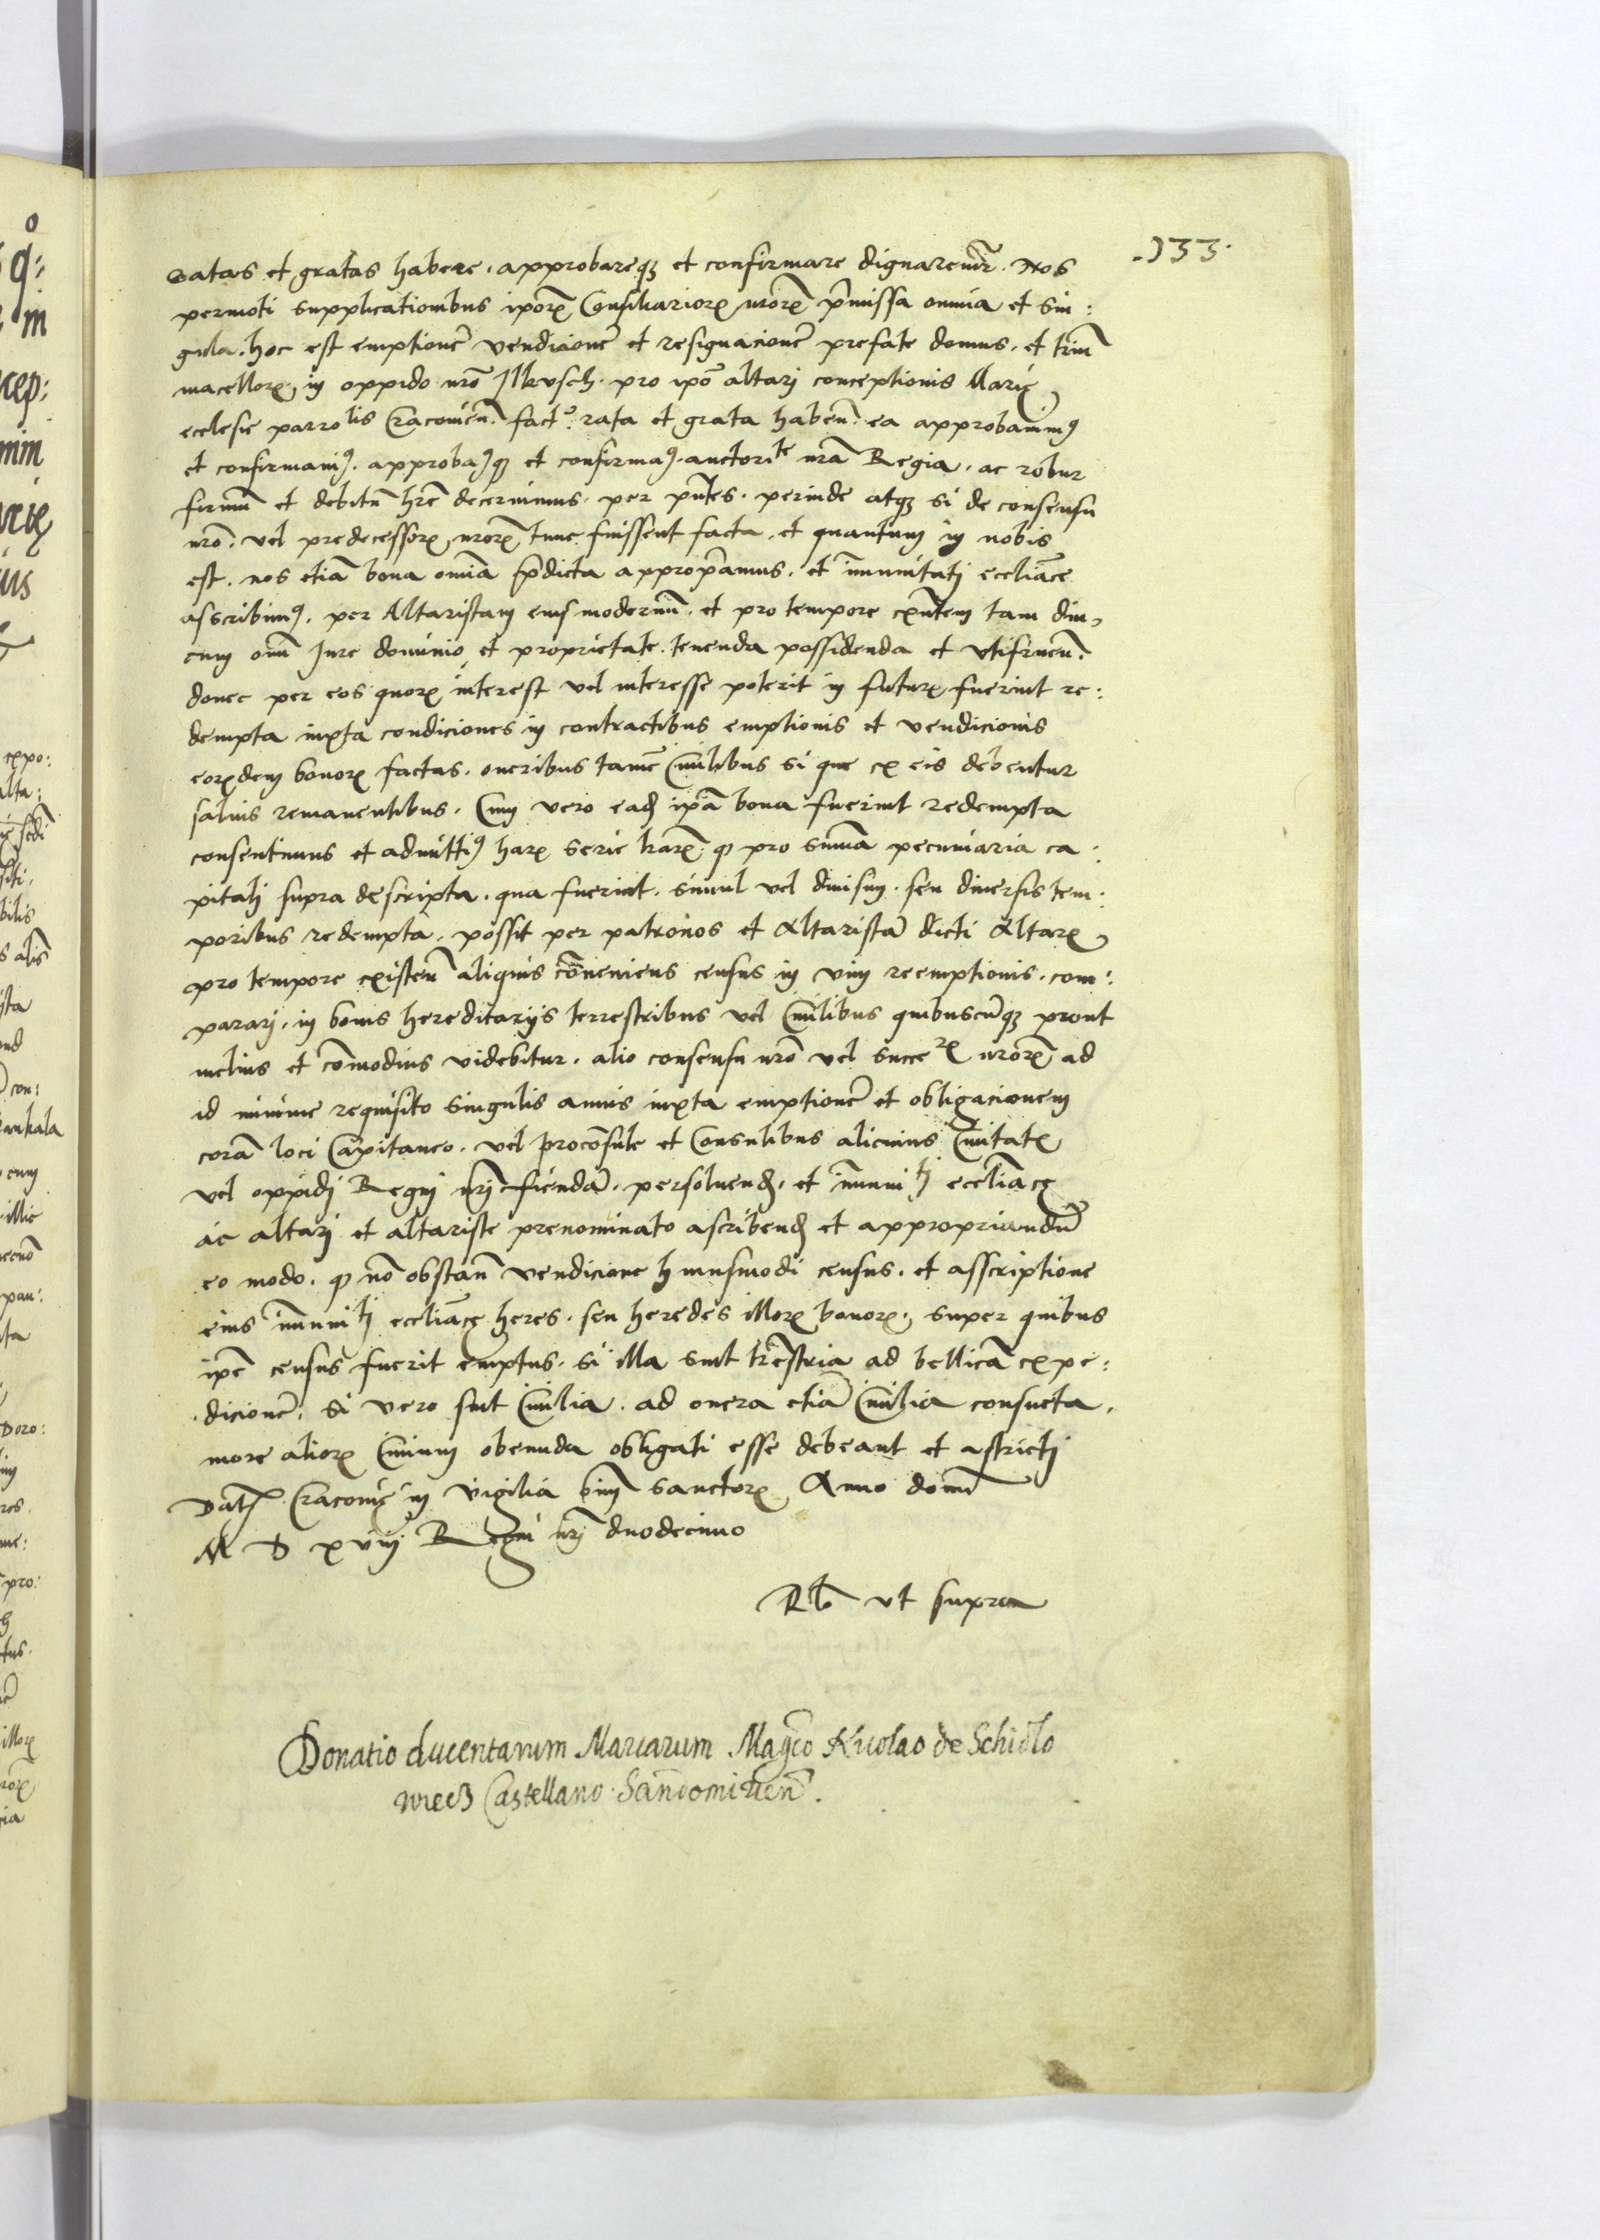 .133.
ratas et gratas habere. approbareqꝫ et confirmare dignaremur̃. Nos
permoti supplicationibus ipoꝝ̃ Consiliarioꝝ nr̃oꝝ p̃missa omnia et sin:
gula. hoc est emptionẽ vendicionẽ et resignacionẽ prefate domus. et triũ
macelloꝝ, in oppido nr̃o Ilkusch. pro ip̃o altari conceptionis Marię
ecclesie parrolis Cracovień. fact. rata et grata habeñ. ea approbavimꝰ
et confirmavimꝰ. approbamꝰqꝫ et confirmamꝰ. auctorite nr̃a Regia. ac robur
firmũ et debitũ hr̃e decernimus. per pñtes. perinde atqꝫ si de consensu
nr̃o. vel predecessoꝝ nr̃oꝝ tunc fuissent facta. et quantum in nobis
est. nos etiã bona om̃ia p̃dicta appropr̃amus. et im̃unitati eccl̃iace
ascribimꝰ. per Altaristam eius modernũ. et pro tempore exñtem tam diu,
cum om̃i Jure dominio et proprietate. tenenda possidenda et vtifrueñ.
donec per eos quoꝝ interest vel interesse poterit in futuꝝ fuerint re:
dempta iuxta condiciones in contractibus emptionis et vendicionis
eoꝝdem bonoꝝ factas. oneribus tamẽ Civilibus si que ex eis debentur
salvis remanentibus. Cum vero eadẽ ip̃a bona fuerint redempta
consentimus et admittimꝰ haꝝ serie lr̃aꝝ. qꝫ pro summa pecuniaria ca:
pitali supra descripta. qua fuerint. simul vel divisim. seu diversis tem:
poribus redempta. possit per patronos et Altaristã dicti Altaris
pro tempore existeñ aliquis cõveniens census in vim reemptionis. com:
parari. in bonis hereditarijs terrestribus vel Civilibus quibuscũqꝫ prout
melius et com̃odius videbitur. alio consensu nr̃o vel succeꝝ nr̃oꝝ ad
id minime requisito singulis annis iuxta emptionẽ et obligacionem
corã loci Capitaneo. vel procõsule et Consulibus alicuius Civitatis
vel oppidj Regni nr̃j fiendã. persolvendꝫ. et im̃unitj eccl̃iacę
ac altari et altariste prenominato ascribendꝫ et appropriandũ
eo modo. qꝫ nõ obstañ vendicione huiusmodi census. et asscriptione
eius im̃unitj eccl̃iacę heres. seu heredes illoꝝ bonoꝝ. super quibus
ip̃e census fuerit emptus. si illa sint tr̃estria ad bellicã expe:
dicionẽ. si vero sint Civilia. ad onera etiã Civilia consueta.
more alioꝝ Civium obeunda obligati esse debeant et astricti
Datꝭ Cracovię in vigilia om̃iũ sanctoꝝ Anno domĩ
M D xviij Regni nr̃j duodecimo
Rłõ vt supra
Donatio ducentarum Marcarum Mag͂co Nicolao de Schidlo
wiecz Castellano Sandomirień.